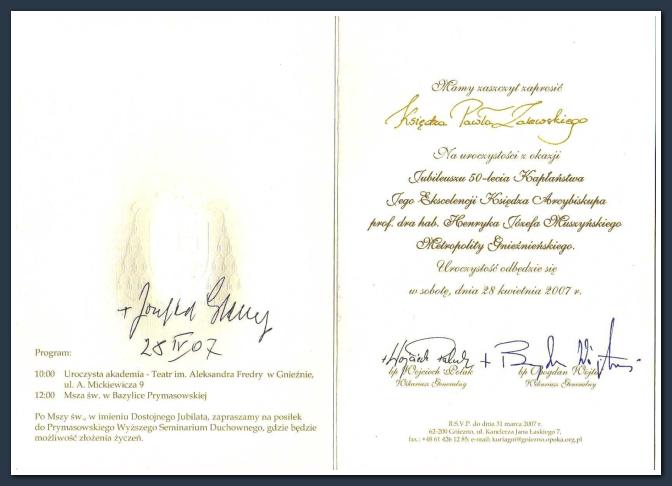 + Józef
28 IV 07
Program:
10:00 Uroczysta akademia - Teatr im. Aleksandra Fredry w Gnieźnie,
ul. A. Mickiewicza 9
12:00 Msza św. w Bazylice Prymasowskiej
Po Mszy św., w imieniu Dostojnego Jubilata, zapraszamy na posiłek
do Prymasowskiego Wyższego Seminarium Duchownego, gdzie będzie
możliwość złożenia życzeń.
Mamy zaszczyt zaprosić
Księdza Pawła Zalewskiego
Na uroczystości z okazji
Jubileuszu 50-lecia Kapłaństwa
Jego Ekscelencji Księdza Arcybiskupa
prof. dra hab. Henryka Józefa Muszyńskiego
Metropolity Gnieźnieńskiego.
Uroczystość odbędzie się
w sobotę, dnia 28 kwietnia 2007 r.
+ Wojciech Polak + Bogdan Wojtuś
bp Wojciech Polak bp Bogdan Wojtuś
Wikariusz Generalny Wikariusz Generalny
R.S.V.P. do dnia 31 marca 2007 r.
62-200 Gniezno, ul. Kanclerza Jana Łaskiego 7,
fax.: +48 61 426 12 85; e-mail: kuriagni@gniezno.opoka.org.pl